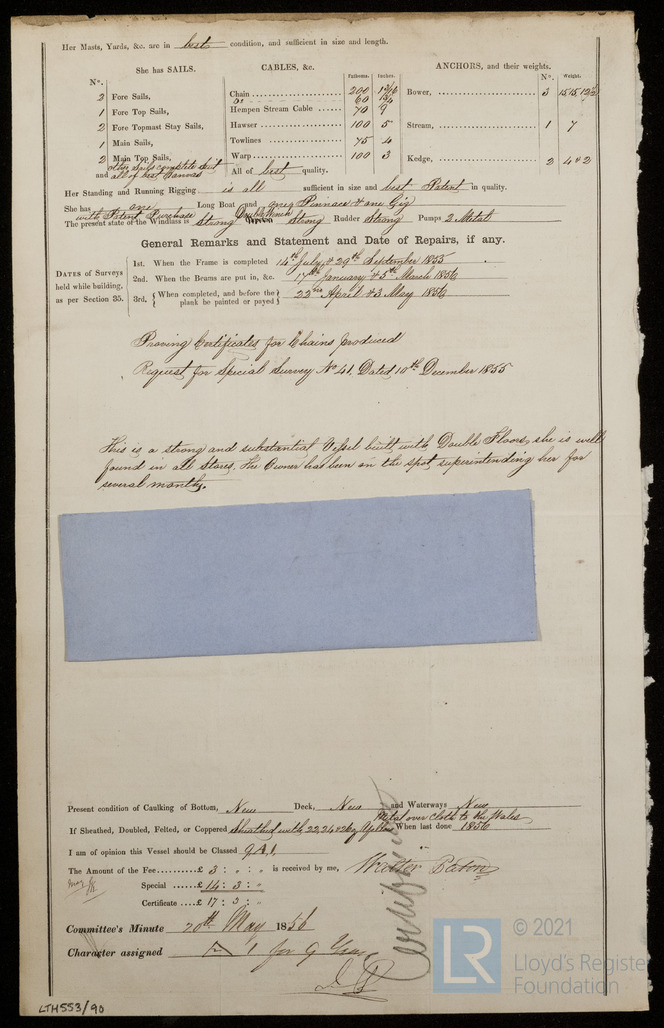 Her Masts, Yards, &c. are in best condition, and sufficient in size and length.
She has SAILS.
No.
2 Fore Sails,
1 Fore Top Sails,
2 Fore Topmast Stay Sails,
1 Main Sails,
2 Main Top Sails,
other Sails complete
and all of best Canvas
CABLES, &c.
Fathoms. Inches.
Chain 200
Do 60
Hempen Stream Cable 70 9
Hawser 100 5
Towlines 75 4
Warp 100 3
All of best quality.
ANCHORS, and their weights.
No. Weight.
Bower, 3
Stream, 1 7
Kedge, 2 4 & 2
Her Standing and Running Rigging is all sufficient in size and best Patent in quality.
She has one Long Boat and one Pinnace & one Gig
with Patent Purchase
The present state of the Windlass is Strong Double Winch Strong Rudder Strong Pumps 2 Metal
General Remarks and Statement and Date of Repairs, if any.
DATES of Surveys
held while building,
as per Section 35.
1st. When the Frame is completed 14th July & 29th September 1855
2nd. When the Beams are put in, &c. 17th January & 5th March 1856
3rd. { When completed, and before the plank be painted or payed } 22nd April & 3 May 1856
Proving Certificates for Chains produced
Request for Special Survey No 41. Dated 10th December 1855
This is a strong and substantial Vessel built with Double Floors, she is well
found in all Stores. The Owner has been on the spot superintending her for
several months.
Present condition of Caulking of Bottom, New Deck, New and Waterways New
Metal over Cloth to the Wales
If Sheathed, Doubled, Felted, or Coppered Sheathed with 22, 24 & 26 oz Yellow When last done 1856
I am of opinion this Vessel should be Classed 9 A 1
The Amount of the Fee £ 3 : " : " is received by me, Walter Paton
Special £ 14 : 3 : "
Certificate £ 17 : 3 : "
Committee's Minute 20th May 1856
Character assigned A 1 for 9 Years
Certificate
LTH553/90
LR
© 2021
Lloyd's Register
Foundation